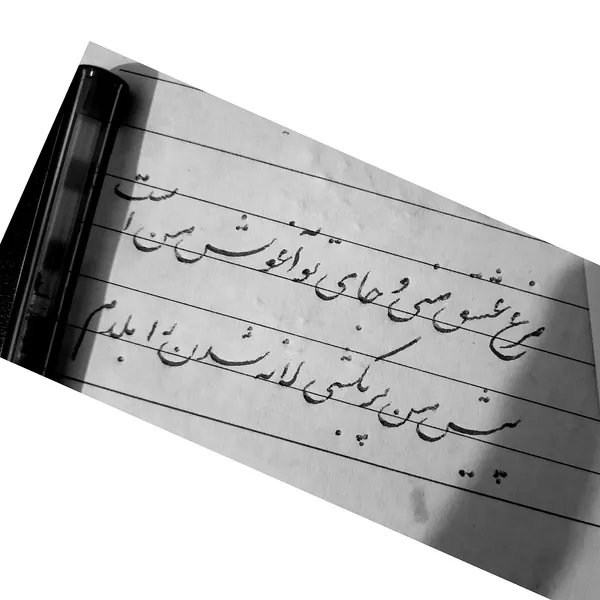 مرغ عشق منی و جای تو آغوش من است
پیش من پر بکشی لانه شدن را بلدم